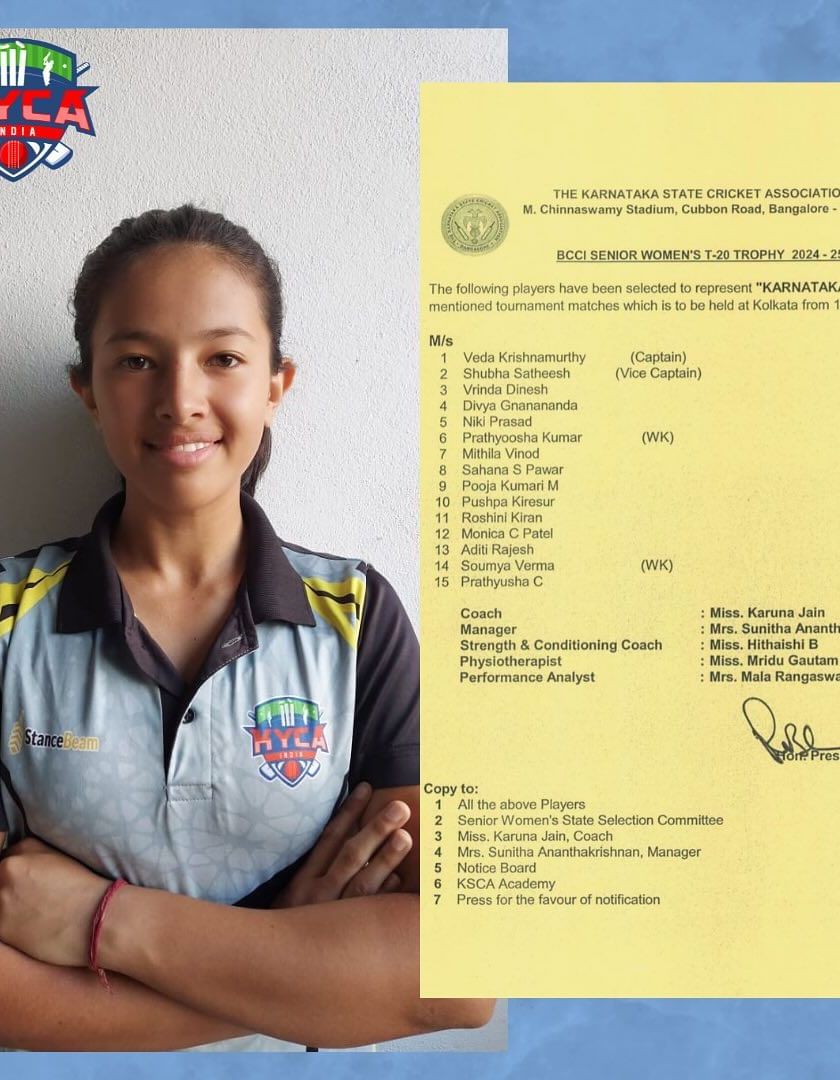 KYCA
INDIA
StanceBeam
KYCA
INDIA
THE KARNATAKA STATE CRICKET ASSOCIATIO
M. Chinnaswamy Stadium, Cubbon Road, Bangalore -
BCCI SENIOR WOMEN'S T-20 TROPHY 2024 - 25
The following players have been selected to represent "KARNATAKA
mentioned tournament matches which is to be held at Kolkata from 1
M/s
1 Veda Krishnamurthy (Captain)
2 Shubha Satheesh (Vice Captain)
3 Vrinda Dinesh
4 Divya Gnanananda
5 Niki Prasad
6 Prathyoosha Kumar (WK)
7 Mithila Vinod
8 Sahana S Pawar
9 Pooja Kumari M
10 Pushpa Kiresur
11 Roshini Kiran
12 Monica C Patel
13 Aditi Rajesh
14 Soumya Verma (WK)
15 Prathyusha C
Coach : Miss. Karuna Jain
Manager : Mrs. Sunitha Ananth
Strength & Conditioning Coach : Miss. Hithaishi B
Physiotherapist : Miss. Mridu Gautam
Performance Analyst : Mrs. Mala Rangaswa
Hon. Pres
Copy to:
1 All the above Players
2 Senior Women's State Selection Committee
3 Miss. Karuna Jain, Coach
4 Mrs. Sunitha Ananthakrishnan, Manager
5 Notice Board
6 KSCA Academy
7 Press for the favour of notification